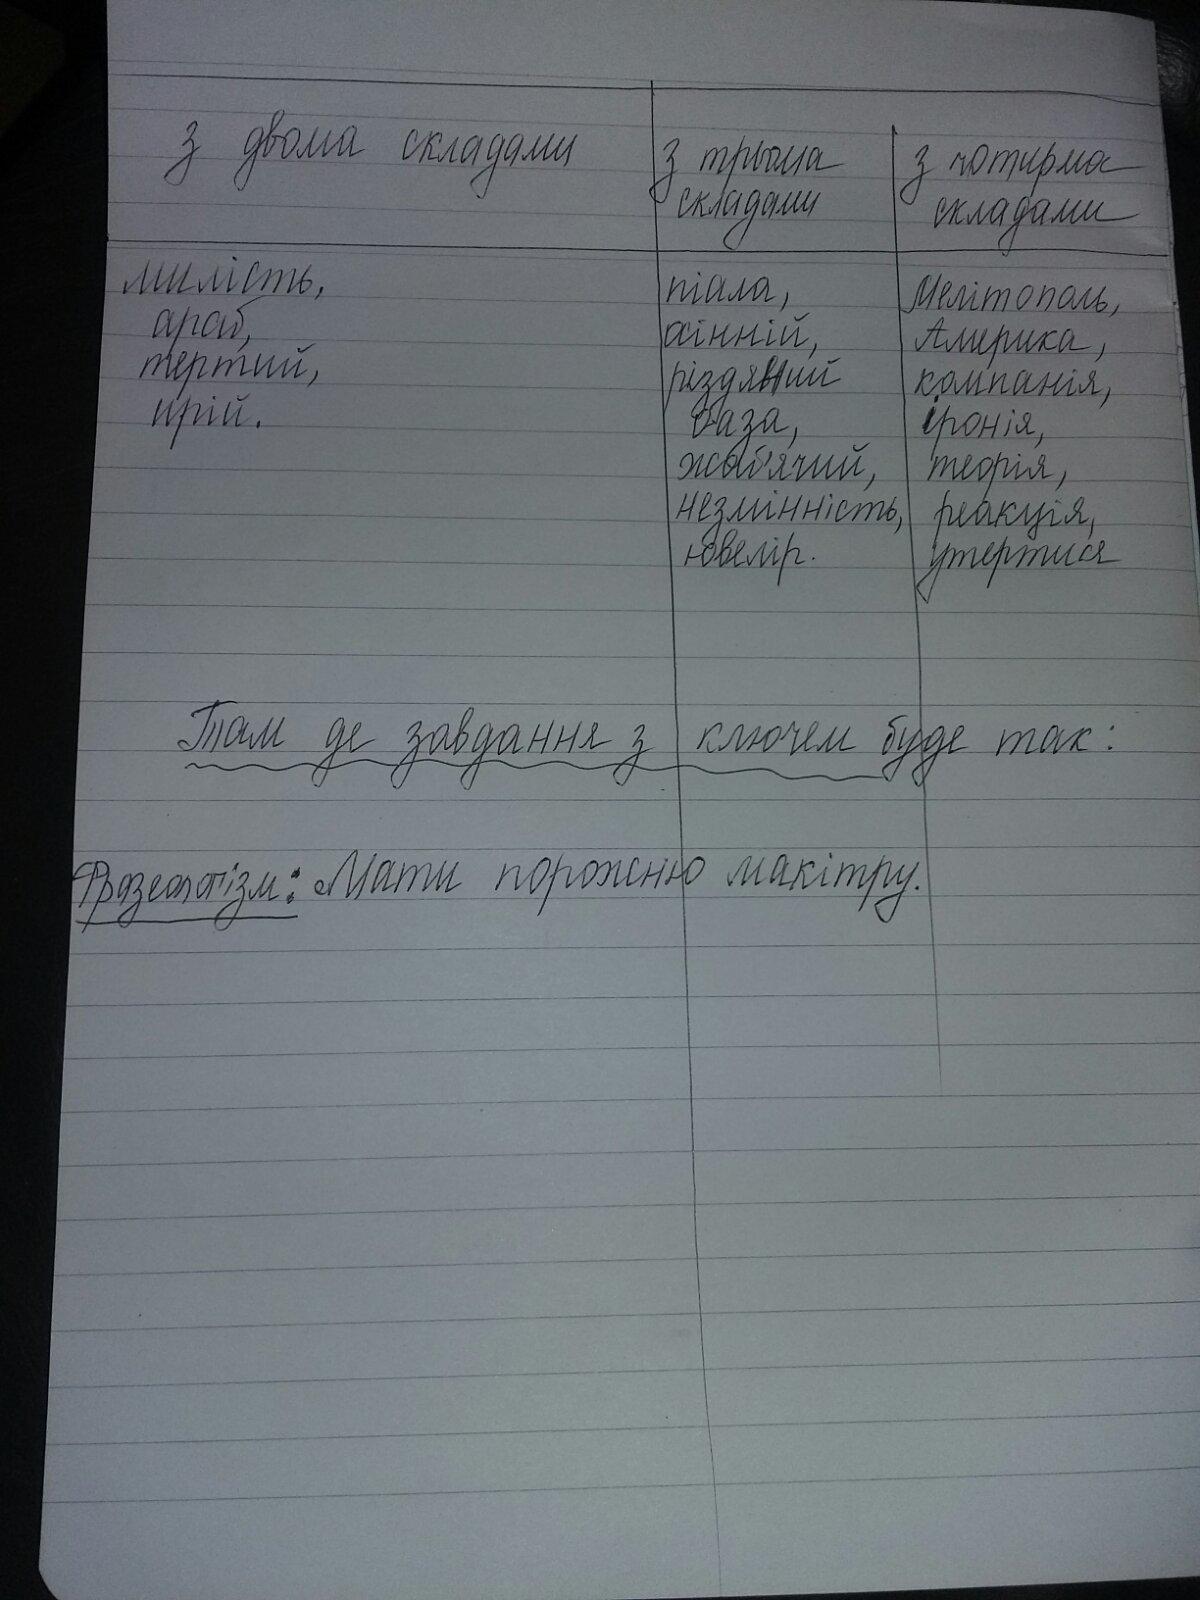 з двома складами
з трьома складами
з чотирма складами
милість,
араб,
тертий,
ирій.
піала,
осінній,
різдвяний
оаза,
жаб'ячий,
незмінність,
ювелір.
Мелітополь,
Америка,
компанія,
іронія,
теорія,
реакція,
утертися
Там де завдання з ключем буде так:
Фразеологізм: Мати порожню макітру.